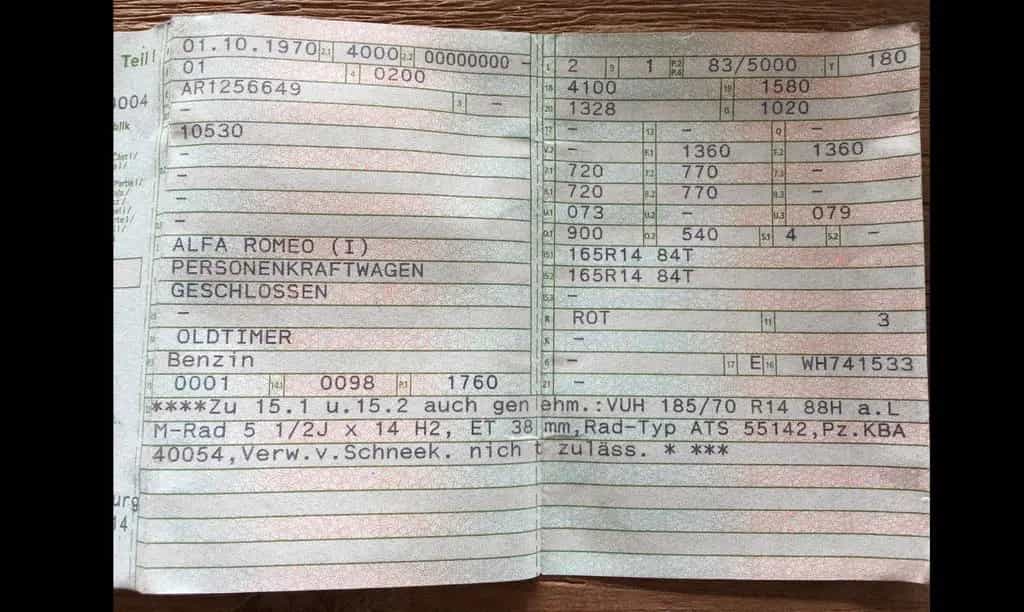 Teil I
01.10.1970 2.1 4000 2.2 00000000 -
01 4 0200
AR1256649
- 3 -
10530
-
-
-
-
ALFA ROMEO (I)
PERSONENKRAFTWAGEN
GESCHLOSSEN
-
OLDTIMER
Benzin
0001 14.1 0098 P.1 1760
L 2 9 1 P.2 P.4 83/5000 T 180
18 4100 19 1580
20 1328 G 1020
- 13 - Q -
V.7 - F.1 1360 F.2 1360
7.1 720 7.2 770 7.3 -
8.1 720 8.2 770 8.3 -
U.1 073 U.2 - U.3 079
O.1 900 O.2 540 S.1 4 S.2 -
15.1 165R14 84T
15.2 165R14 84T
15.3 -
R ROT 11 3
K -
6 - 17 E 16 WH741533
21 -
****Zu 15.1 u.15.2 auch genehm.:VUH 185/70 R14 88H a.L
M-Rad 5 1/2J x 14 H2, ET 38 mm,Rad-Typ ATS 55142,Pz.KBA
40054,Verw.v.Schneek. nicht zuläss. * ***
0004
urg
14